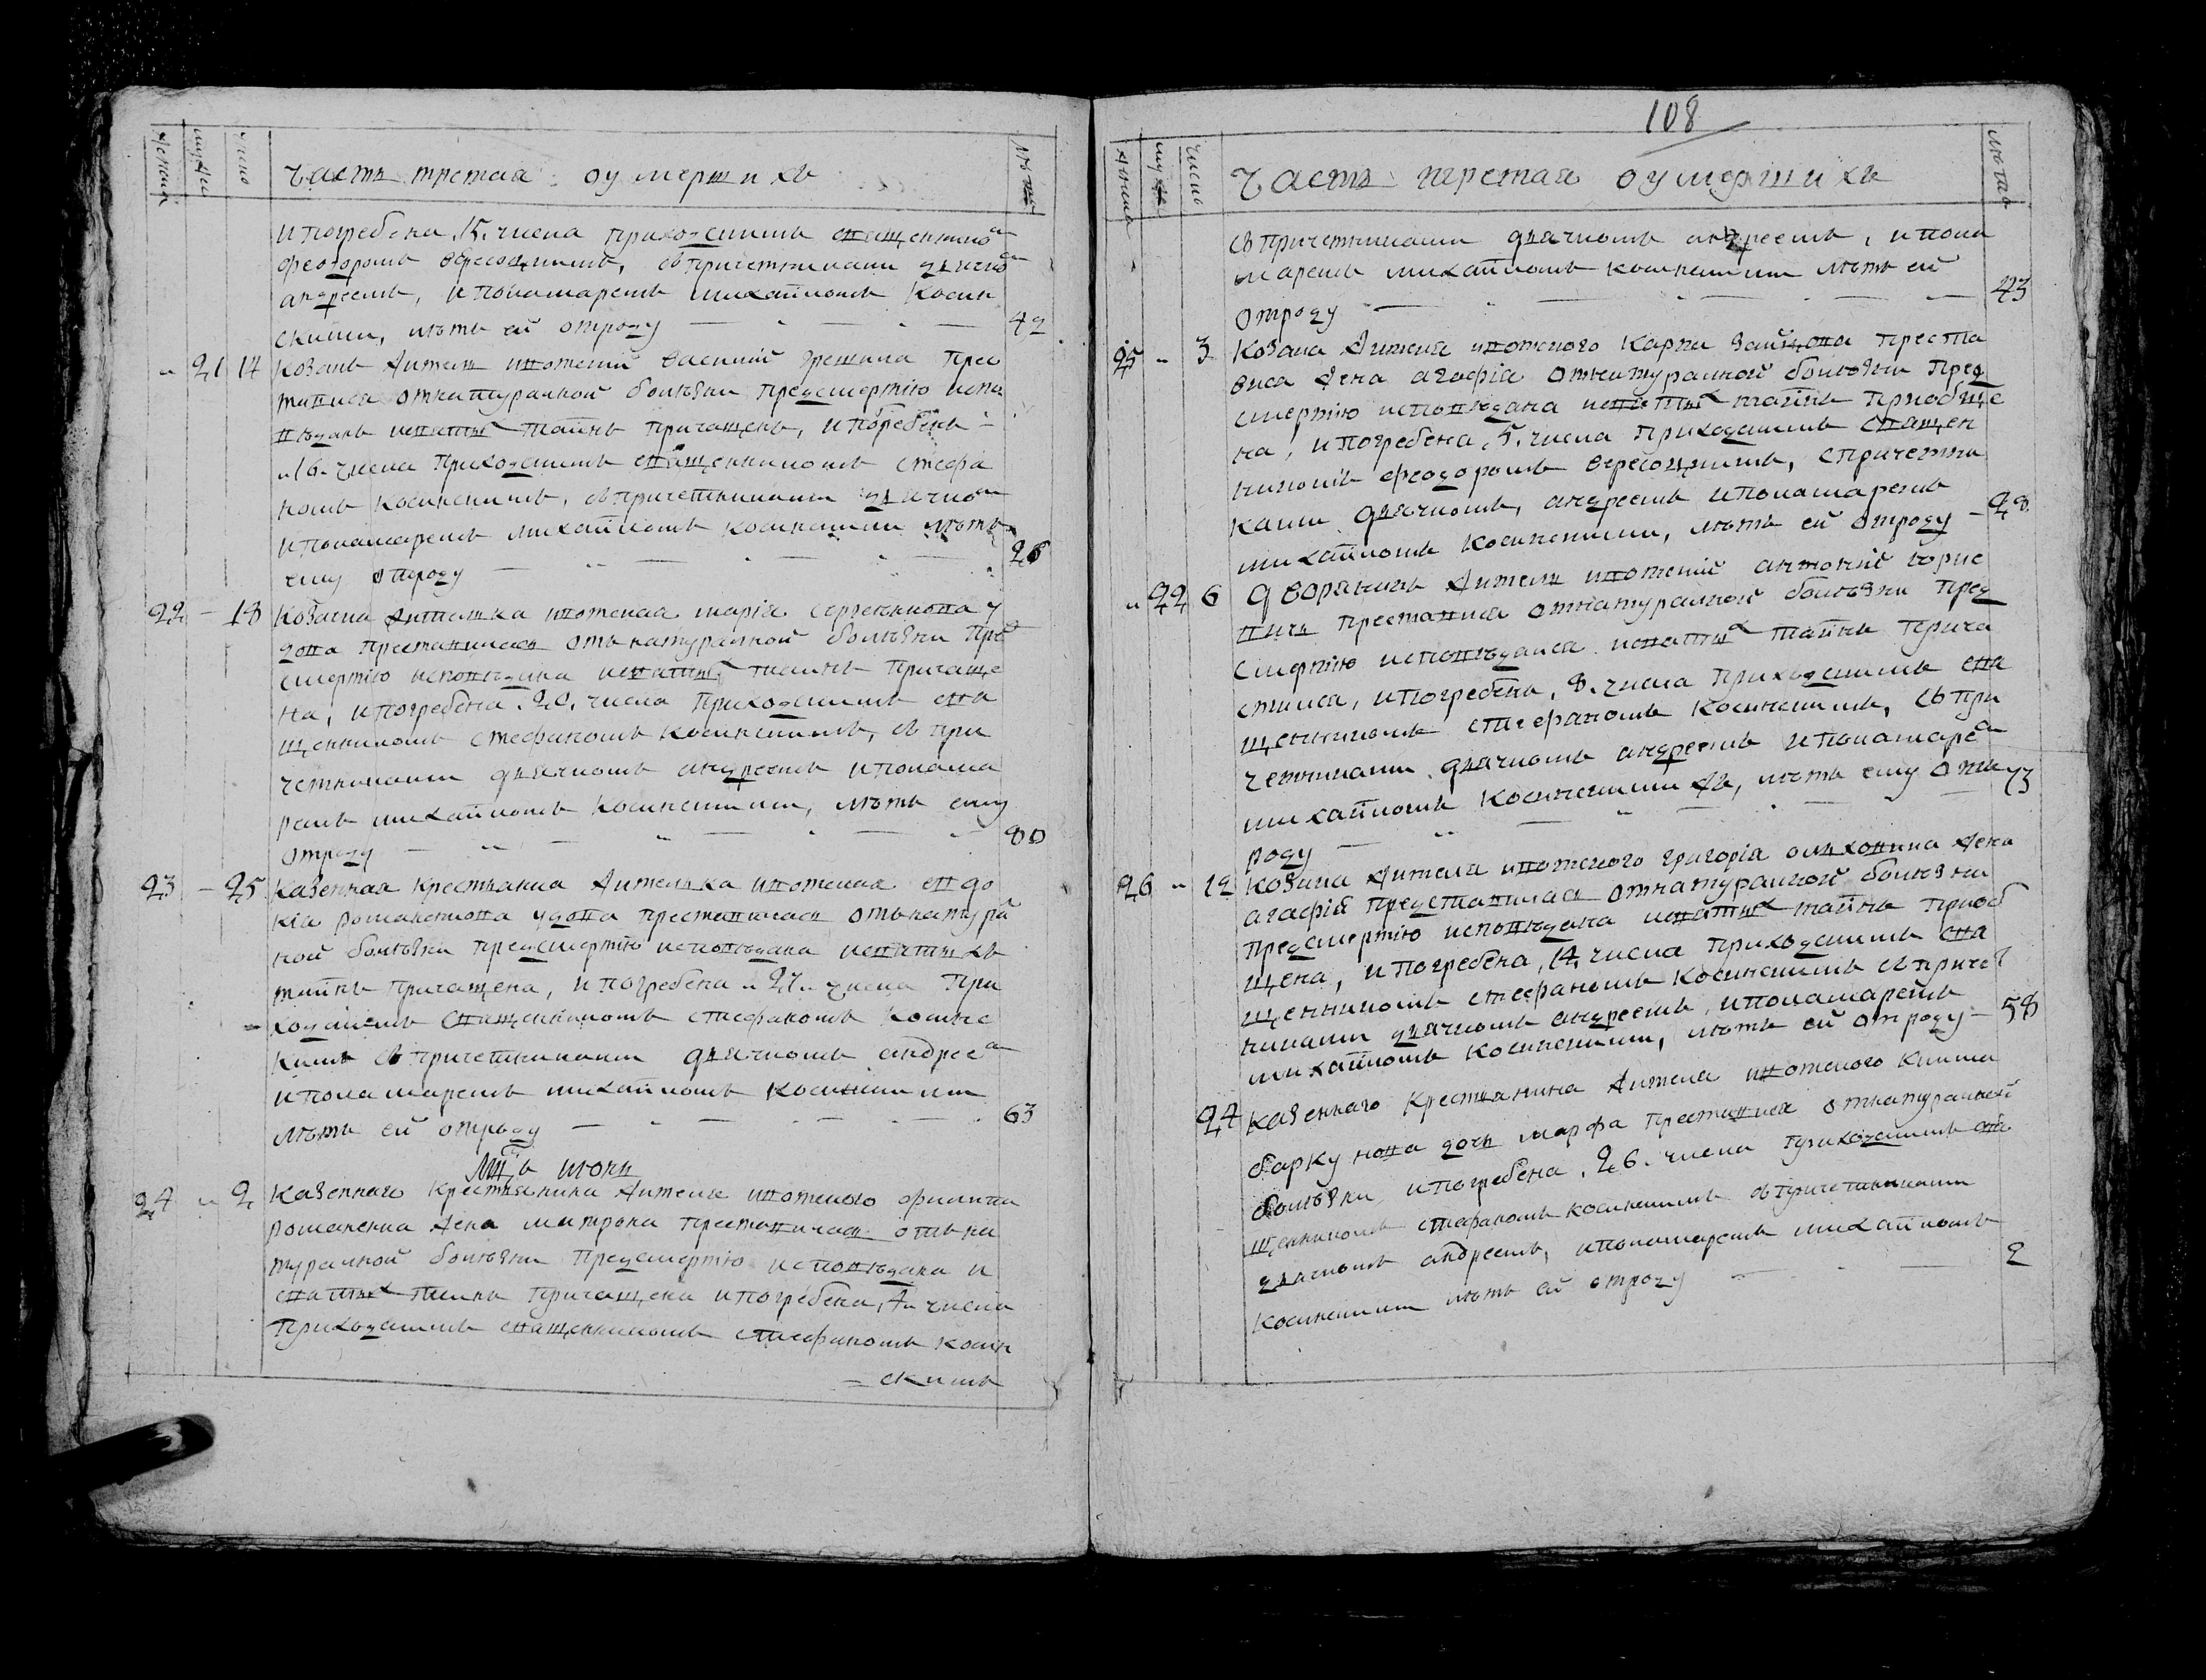 108
женскъ мужск число часть третая оумершихъ лѣта
и погребена 15. числа приходскимъ священнико
феодоромъ Вересоцкимъ, съ причетниками дячко
андреемъ, и пономаремъ михаиломъ Косин
скими, лѣтъ ей отроду 42
21 14 Козакъ житель иотскій василій грешила прес
тависа отнатуралной болѣзни предсмертію испо
вѣданъ исвятых таинъ причащенъ, и погребенъ
16. числа приходскимъ священникомъ стефа
номъ косинскимъ, съ причетниками дячко
и пономаремъ михаиломъ косинскими лѣтъ
ему отроду 26
22 18 Козачка жителка иотская марія
дова преставилась отънатуралной болѣзни пред
смертію исповѣдана исвятых таинъ причаще
на, и погребена. 20. числа приходскимъ свя
щенникомъ стефаномъ косинскимъ, съ при
четниками дячкомъ андреемъ и понома
ремъ михаиломъ косинскими, лѣтъ ему
отроду 80
23 25 Казенная крестянка жителка иотская евдо
кіа романенкова удова преставилась отънатурал
ной болѣзни предсмертію исповѣдана исвятыхъ
таинъ причащена, и погребена 27 числа при
ходскимъ священникомъ стефаномъ косинс
кимъ съ причетниками дячкомъ андрее
и пономаремъ михаиломъ косинскими
лѣтъ ей отроду 63
Мцъ июнь
24 2 Казенного крестянина жителя иотского филипа
романенка жена матрона преставилась отъна
туралной болѣзни предсмертію исповѣдана и
святых таинъ причащена и погребена, 4 числа
приходскимъ священникомъ стефаномъ косин
скимъ
женскъ мужск число часть третая оумершихъ лѣта
съ причетниками дячкомъ андреемъ, и поно
маремъ михаиломъ косинскими лѣтъ ей
отроду 43
25 3 Козака жителя иотского карпа зайцова преста
виса жена агафіа отънатуралной болѣзни пред
смертію исповѣдана исвятых таинъ приобще
на, и погребена, 5. числа приходскимъ священ
никомъ феодоромъ вересоцкимъ, спричетни
ками дячкомъ, андреемъ и пономаремъ
михаиломъ косинскими, лѣтъ ей отроду 28.
22 6 дворянинъ житель иотскій антоній борис
вичь преставися отнатуралной болѣзни пред
смертію исповѣдался исвятых таинъ прича
стился, и погребенъ, 8. числа приходскимъ свя
щенникомъ стефаномъ косинскимъ, съ при
четниками дячкомъ андреемъ и пономаре
михаиломъ косинскимихъ, лѣтъ ему отъ 73
роду
26 12 Козака жителя иотского григоріа олиховика жена
агафія представилася отнатуралной болѣзни
предсмертію исповѣдана исвятых таинъ приоб
щена, и погребена, 14. числа приходскимъ свя
щенникомъ стефаномъ косинскимъ съ причет
никами дячкомъ андреемъ, и пономаремъ
михаиломъ косинскими, лѣтъ ей отроду 58
24 Казенного крестянина жителя иотского клима
баркунова дочь марфа преставися отнатуралной
болѣзни и погребена. 26. числа приходскимъ свя
щенникомъ стефаномъ косинскимъ съ причетниками
дячкомъ андреемъ, и пономаремъ михаиломъ
косинскими лѣтъ ей отроду 2